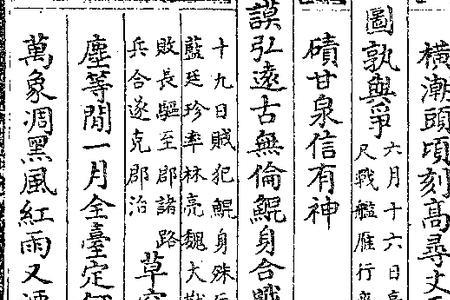 橫潮頭頃刻髙尋丈
圖孰與爭
六月十六日
尺戰艦雁行
磧甘泉信有神
謨弘遠古無倫鯤身合戰
十九日賊犯鯤身殊
藍廷珍率林亮魏大
敗長驅至郡諸路
兵合遂克郡治
草
塵等閒一月全臺定
萬象凋黑風紅雨又